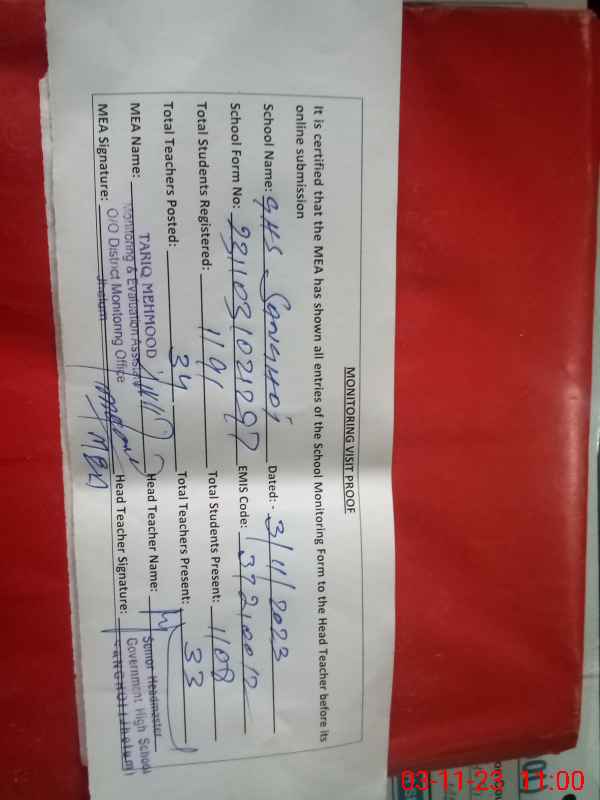 MONITORING VISIT PROOF
It is certified that the MEA has shown all entries of the School Monitoring Form to the Head Teacher before its
online submission
School Name: GHS Sanghoi Dated: - 3/11/2023
School Form No: EMIS Code: 37210012
Total Students Registered: 1191 Total Students Present: 1108
Total Teachers Posted: 34 Total Teachers Present: 33
MEA Name: TARIQ MEHMOOD Head Teacher Name: Senior Headmaster
Monitoring & Evaluation Assistant Government High School
O/O District Monitoring Office
MEA Signature: Jhelum MEA Head Teacher Signature: SANGHOI (Jhelum)
03-11-23 11:00